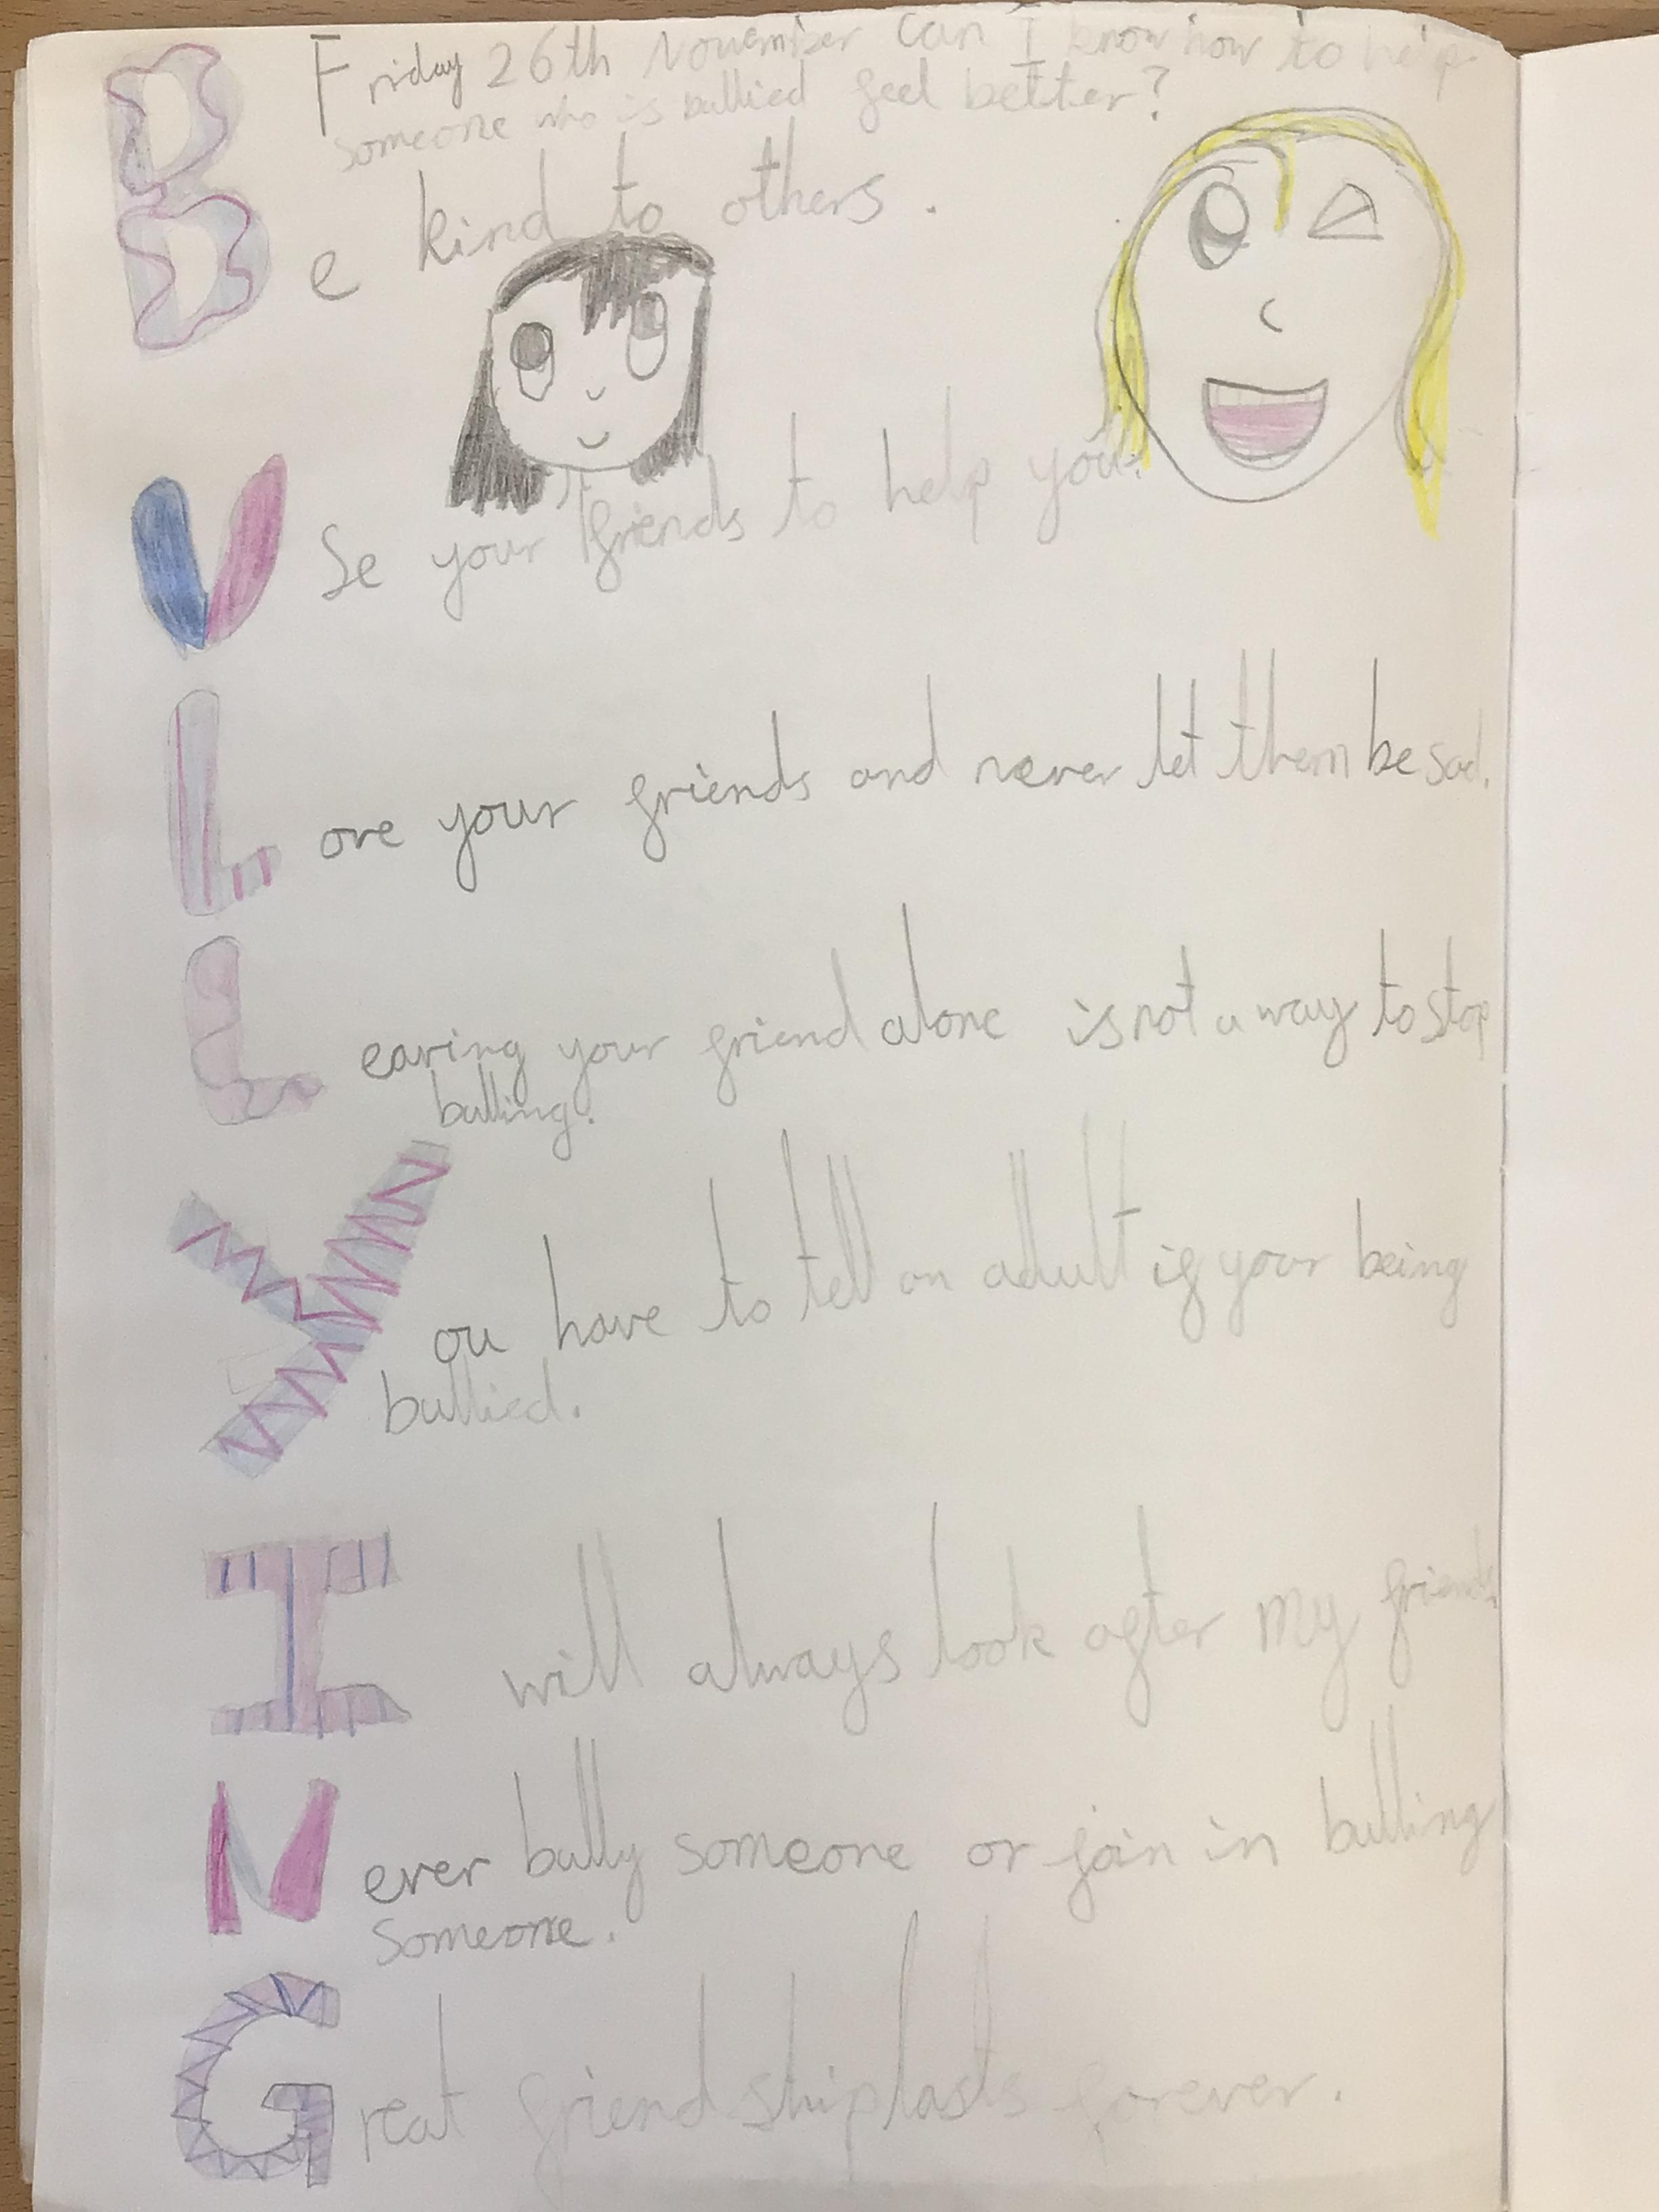 Friday 26th November Can I know how to help
someone who is bullied feel better?
Be kind to others.
Use your friends to help you.
Love your friends and never let them be sad.
Leaving your friend alone is not a way to stop
bulling.
You have to tell an adult if your being
bullied.
I will always look after my friends.
Never bully someone or join in bulling
someone.
Great friend ship lasts forever.